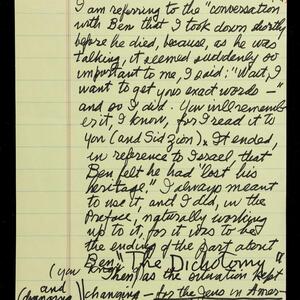 I am referring to the "conversation
with Ben that I took down shortly
before he died, because, as he was
talking, it seemed suddenly so
important to me, I said: "Wait, I
want to get your exact words —"
and so I did. You will remember
it, I know, for I read it to
you (and Sid Zion). It ended,
in reference to Israel, that
Ben felt he had "lost his
heritage." I always meant
to use it, and I did, in the
Preface, naturally working
up to it, for it was to be
the ending of the part about
Ben "The Dichotomy"
(you know
then) as the situation kept
and
changing — for the Jews in Amer-